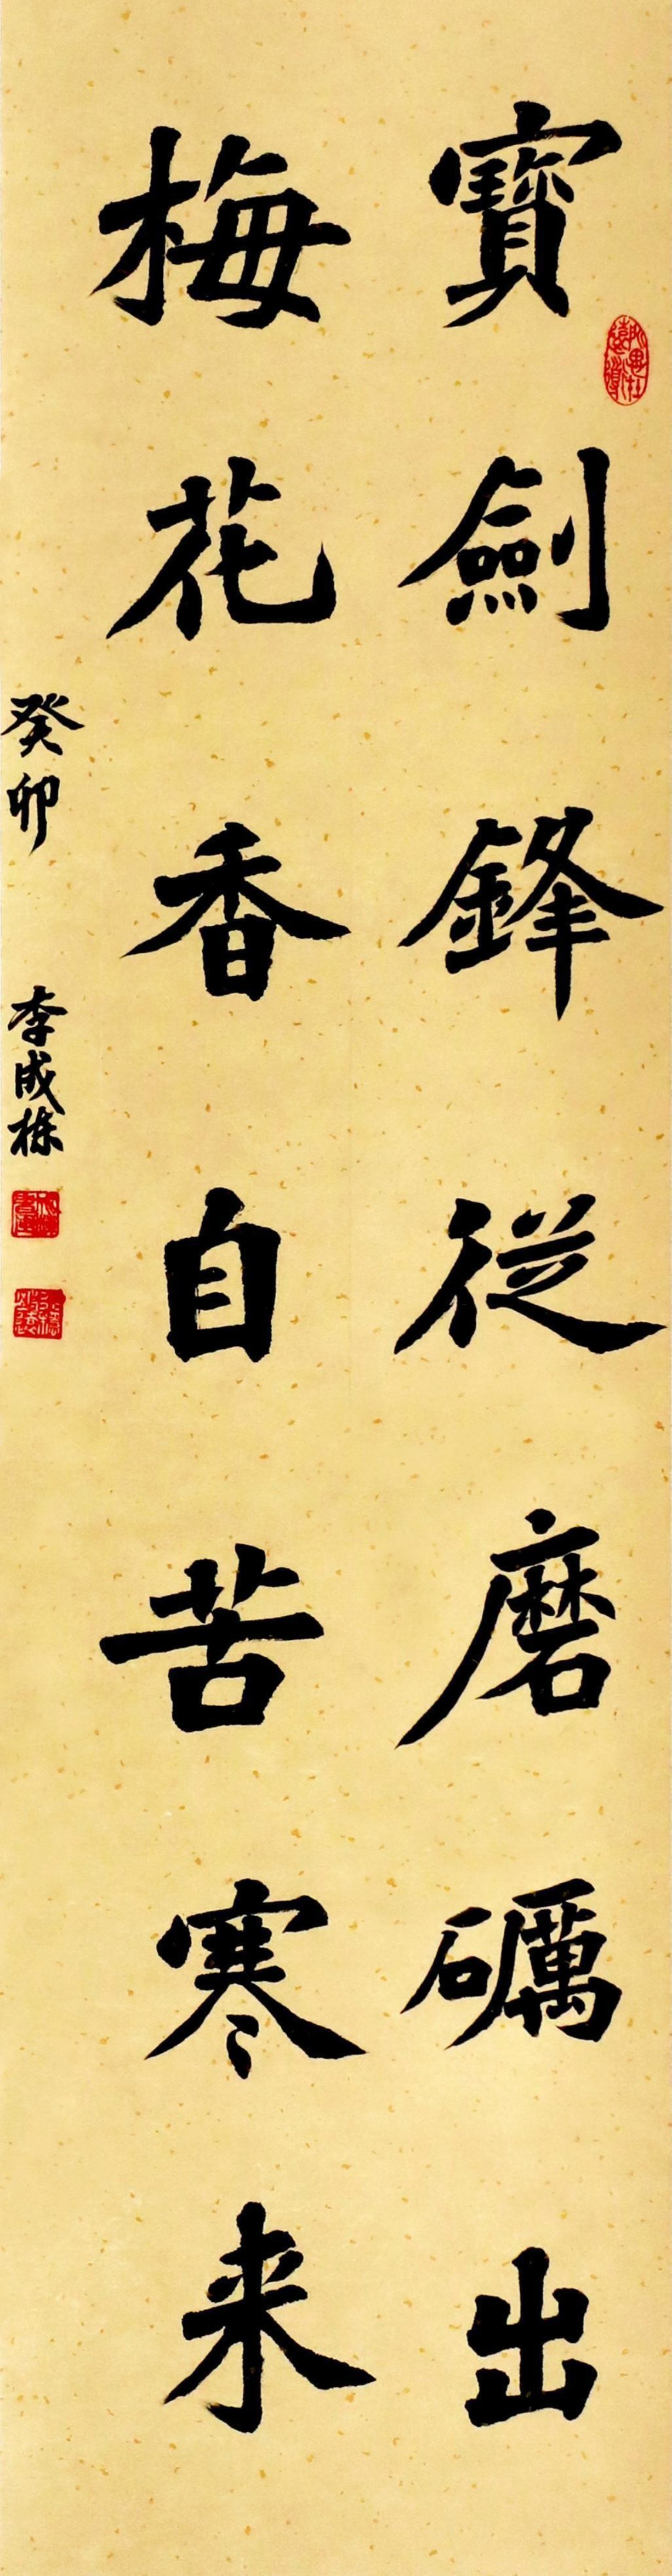 寳劍鋒從磨礪出
梅花香自苦寒来
癸卯 李成栋